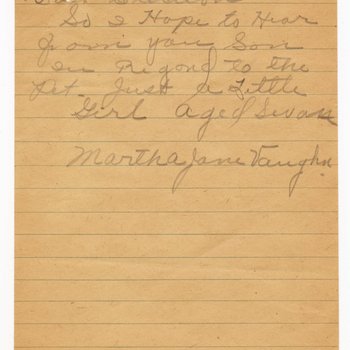 So I Hope to Hear
from you Son
in Regond to the
Pet Just a Little
Girl aged Sevan
Martha Jane Vaughn